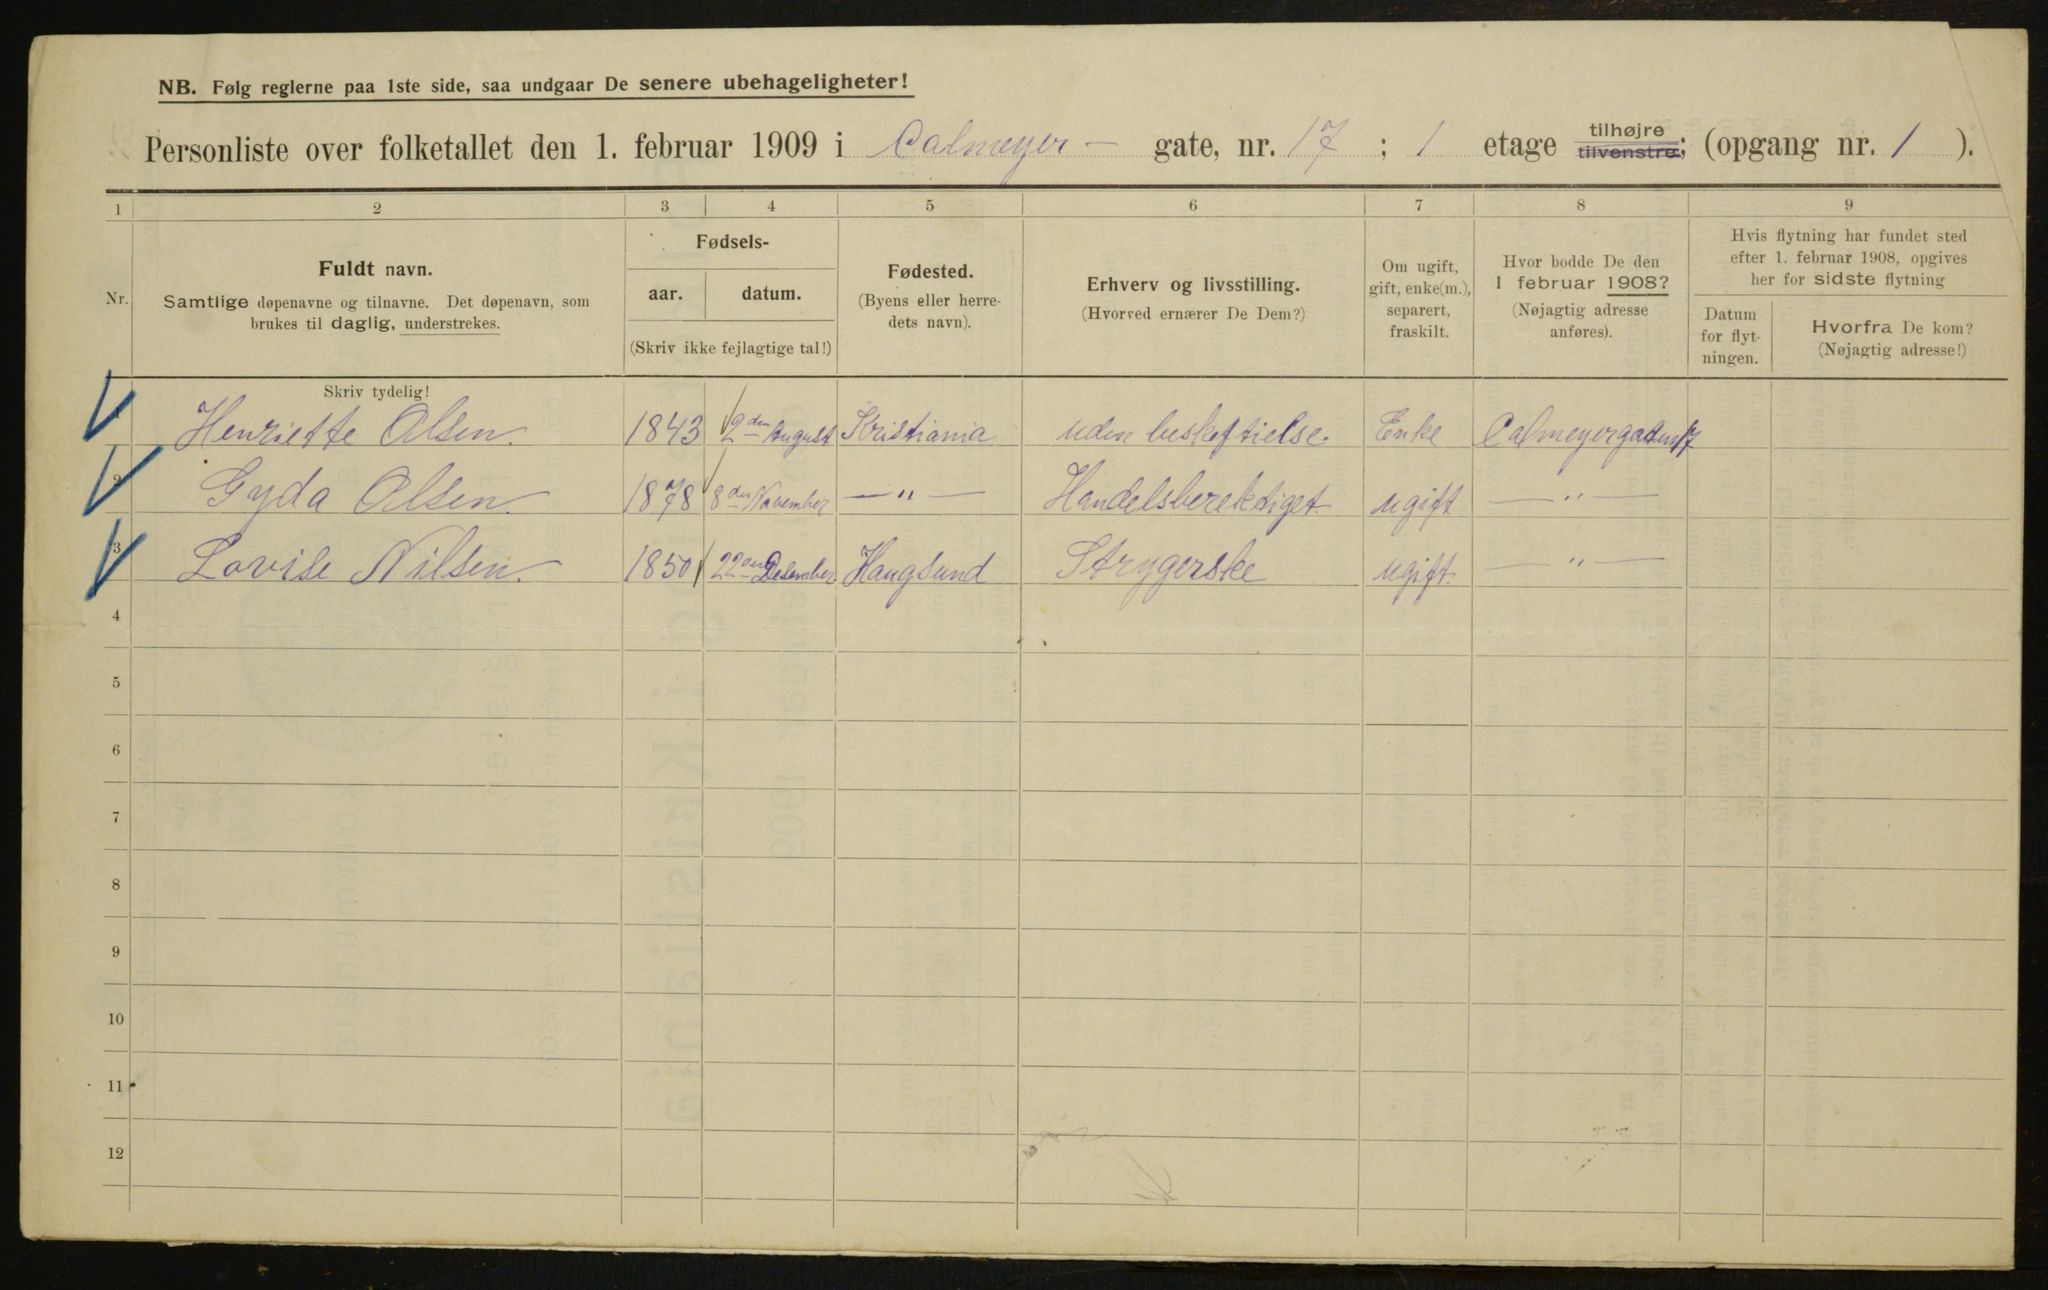 NB. Følg reglerne paa 1ste side, saa undgaar De senere ubehageligheter!
Personliste over folketallet den 1. februar 1909 i Calmeyer — gate, nr. 17 ; 1 etage tilhøjre tilvenstre; (opgang nr. 1 ).
1 2 3 4 5 6 7 8 9
Nr.
Fuldt navn.
Samtlige døpenavne og tilnavne. Det døpenavn, som
brukes til daglig, understrekes.
Fødsels-
aar. datum.
(Skriv ikke fejlagtige tal!)
Fødested.
(Byens eller herre-
dets navn).
Erhverv og livsstilling.
(Hvorved ernærer De Dem?)
Om ugift,
gift, enke(m.),
separert,
fraskilt.
Hvor bodde De den
1 februar 1908?
(Nøjagtig adresse
anføres).
Hvis flytning har fundet sted
efter 1. februar 1908, opgives
her for sidste flytning
Datum
for flyt-
ningen.
Hvorfra De kom?
(Nøjagtig adresse!)
Skriv tydelig!
1 Henriette Olsen. 1843 2den August Kristiania uden beskeftielse. Enke Calmeyergaden 17
2 Gyda Olsen. 1878 8de November — " — Handelsberektiget. ugift — " —
3 Lovise Nilsen. 1850 22den Desember Haugsund Strygerske ugift. — " —
4
5
6
7
8
9
10
11
12